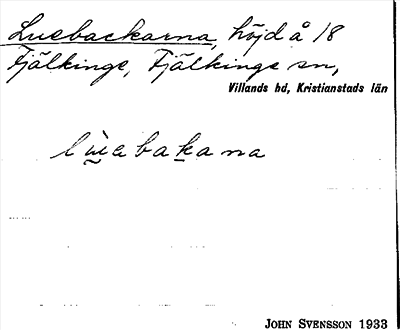 Luebackarna, höjd å 18
Fjälkinge, Fjälkinge sn,
Villands hd, Kristianstads län
lùebakana
JOHN SVENSSON 1933